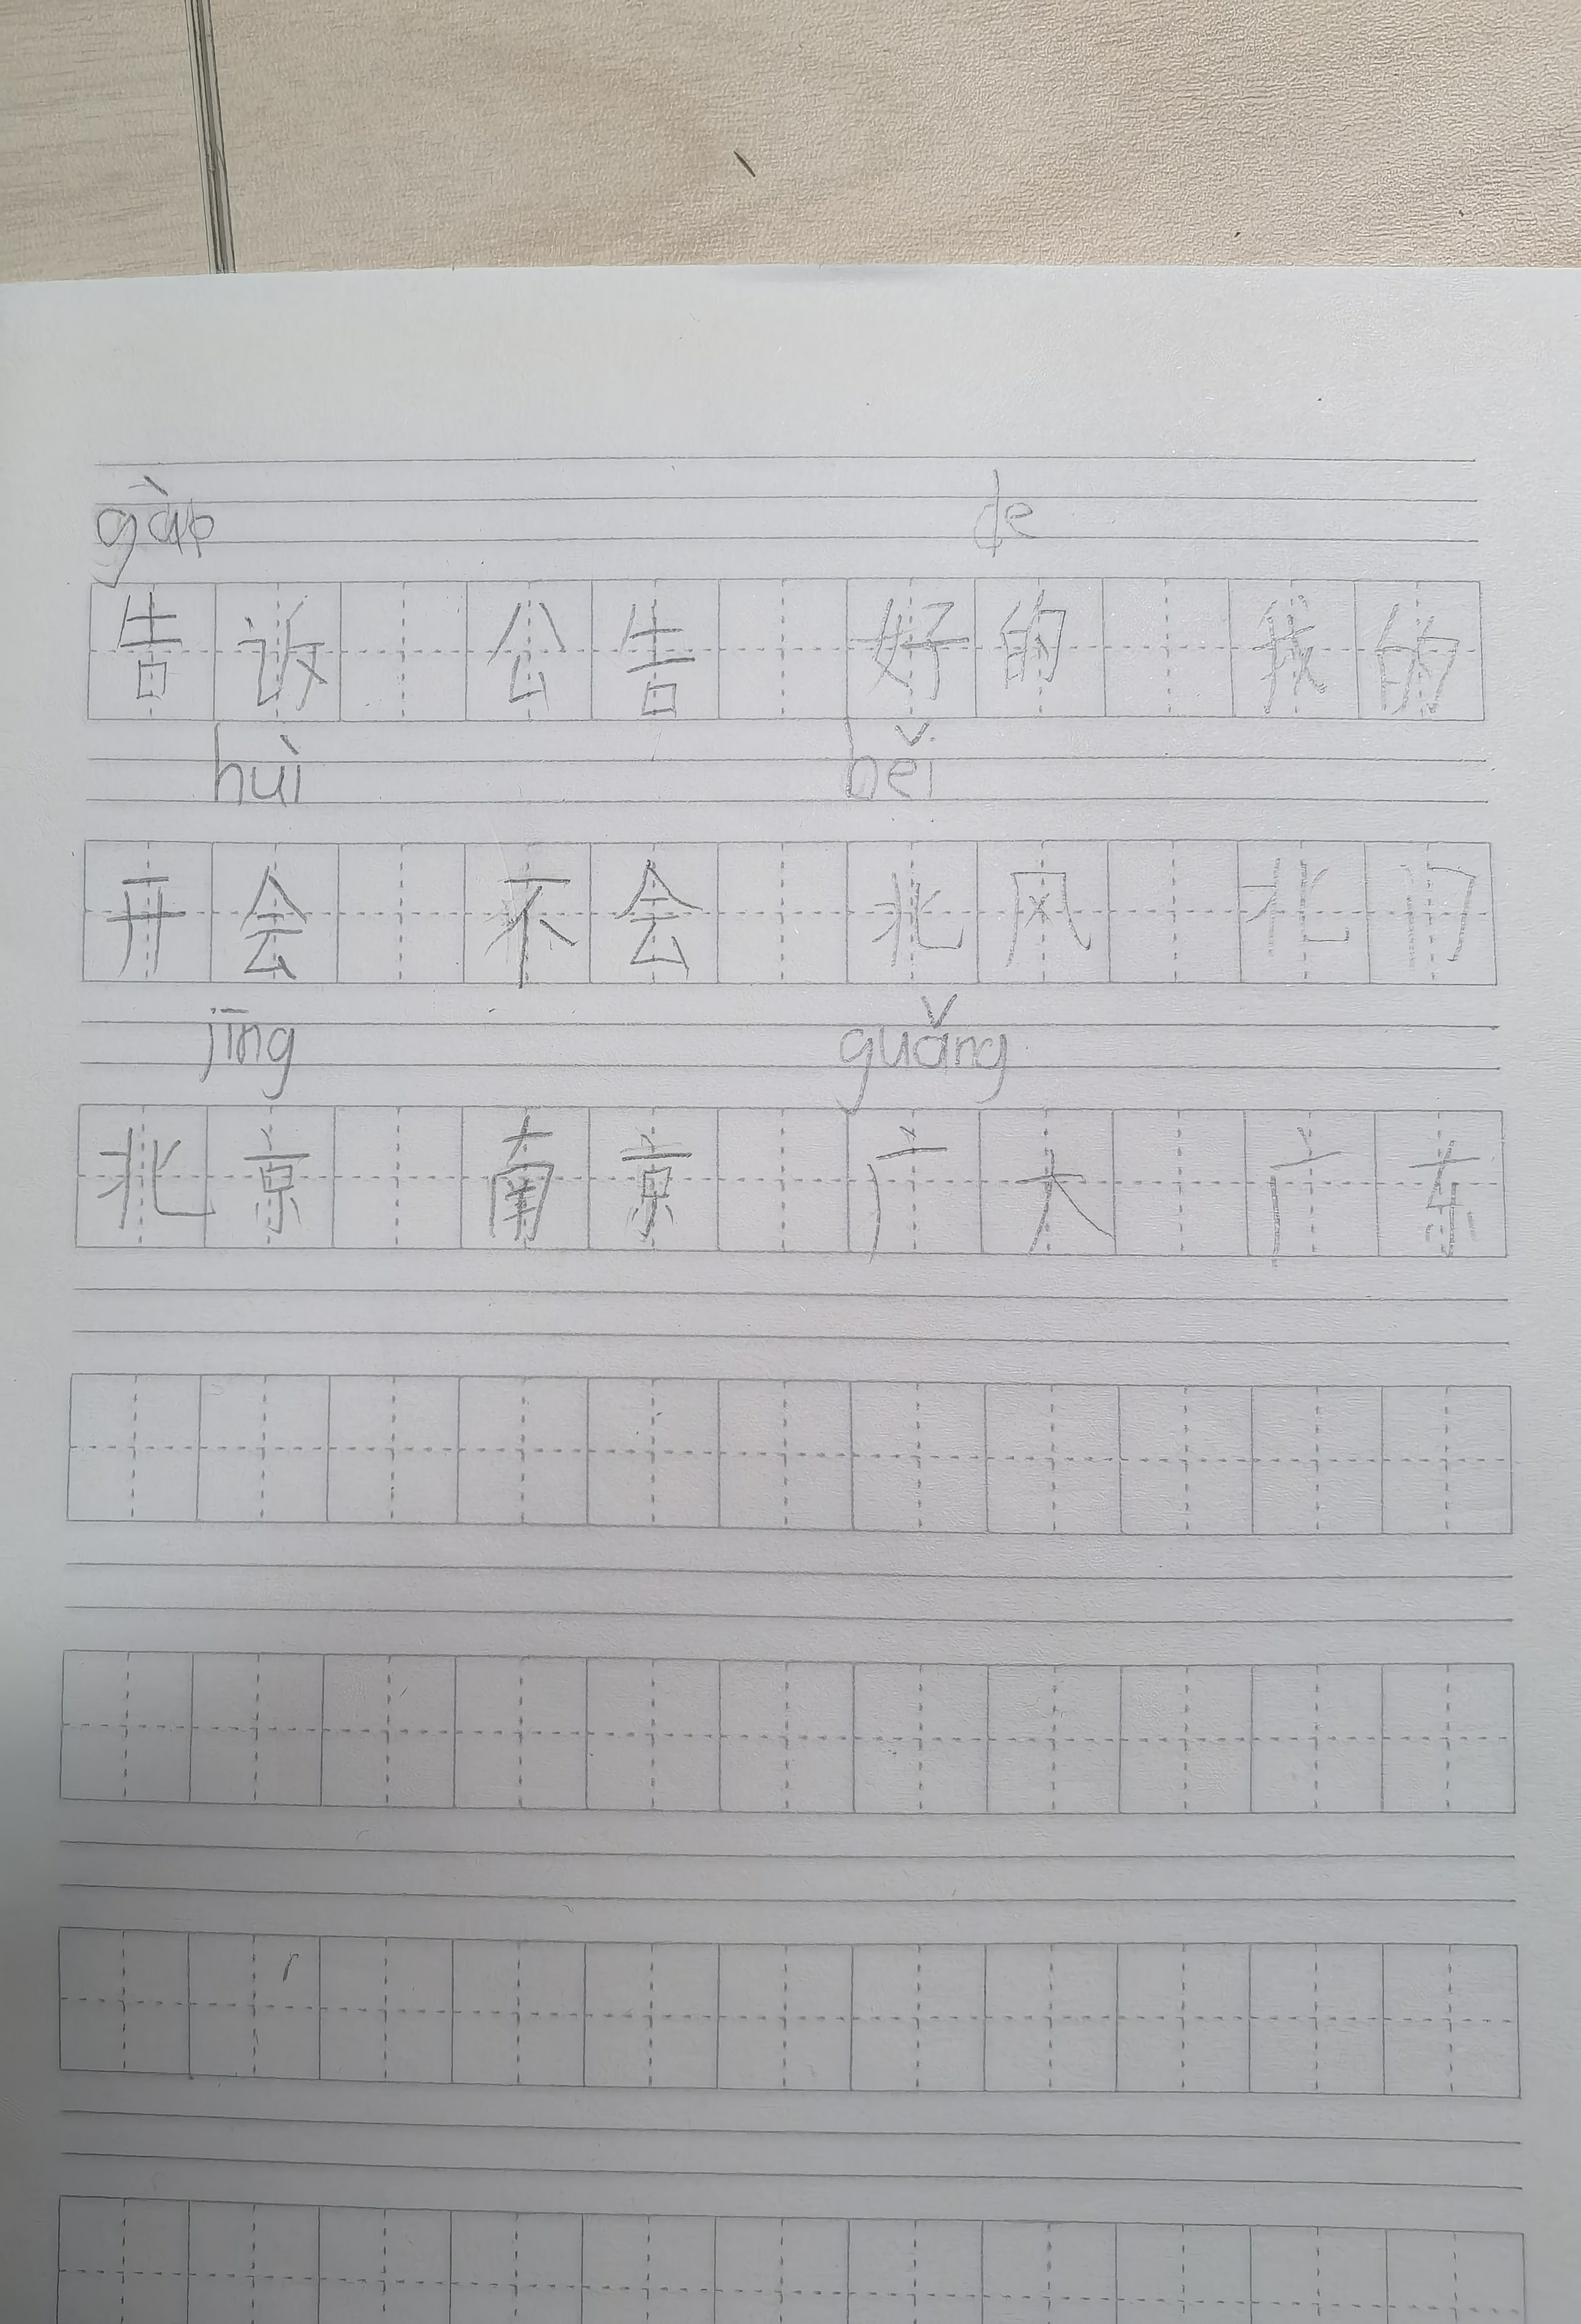 gào de
告诉 公告 好的 我的
huì běi
开会 不会 北风 北门
jīng guǎng
北京 南京 广大 广东